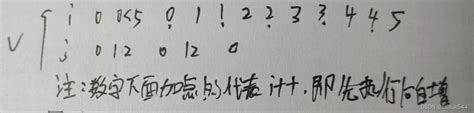 i 0 0<5 0 1 1 2 2 3 3 4 4 5
j 0 1 2 0 1 2 0
注:数字下面加点的代表 i++,即先执行后自增